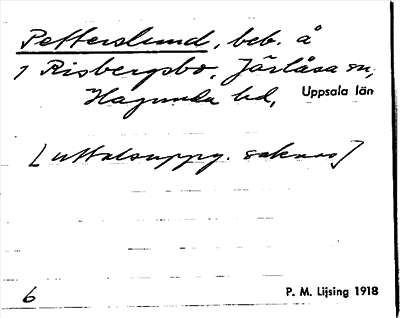 Petterslund, beb. å
1 Risbergsbo, Järlåsa sn,
Hagunda hd, Uppsala län
[uttalsuppg. saknas]
6 P. M. Lijsing 1918